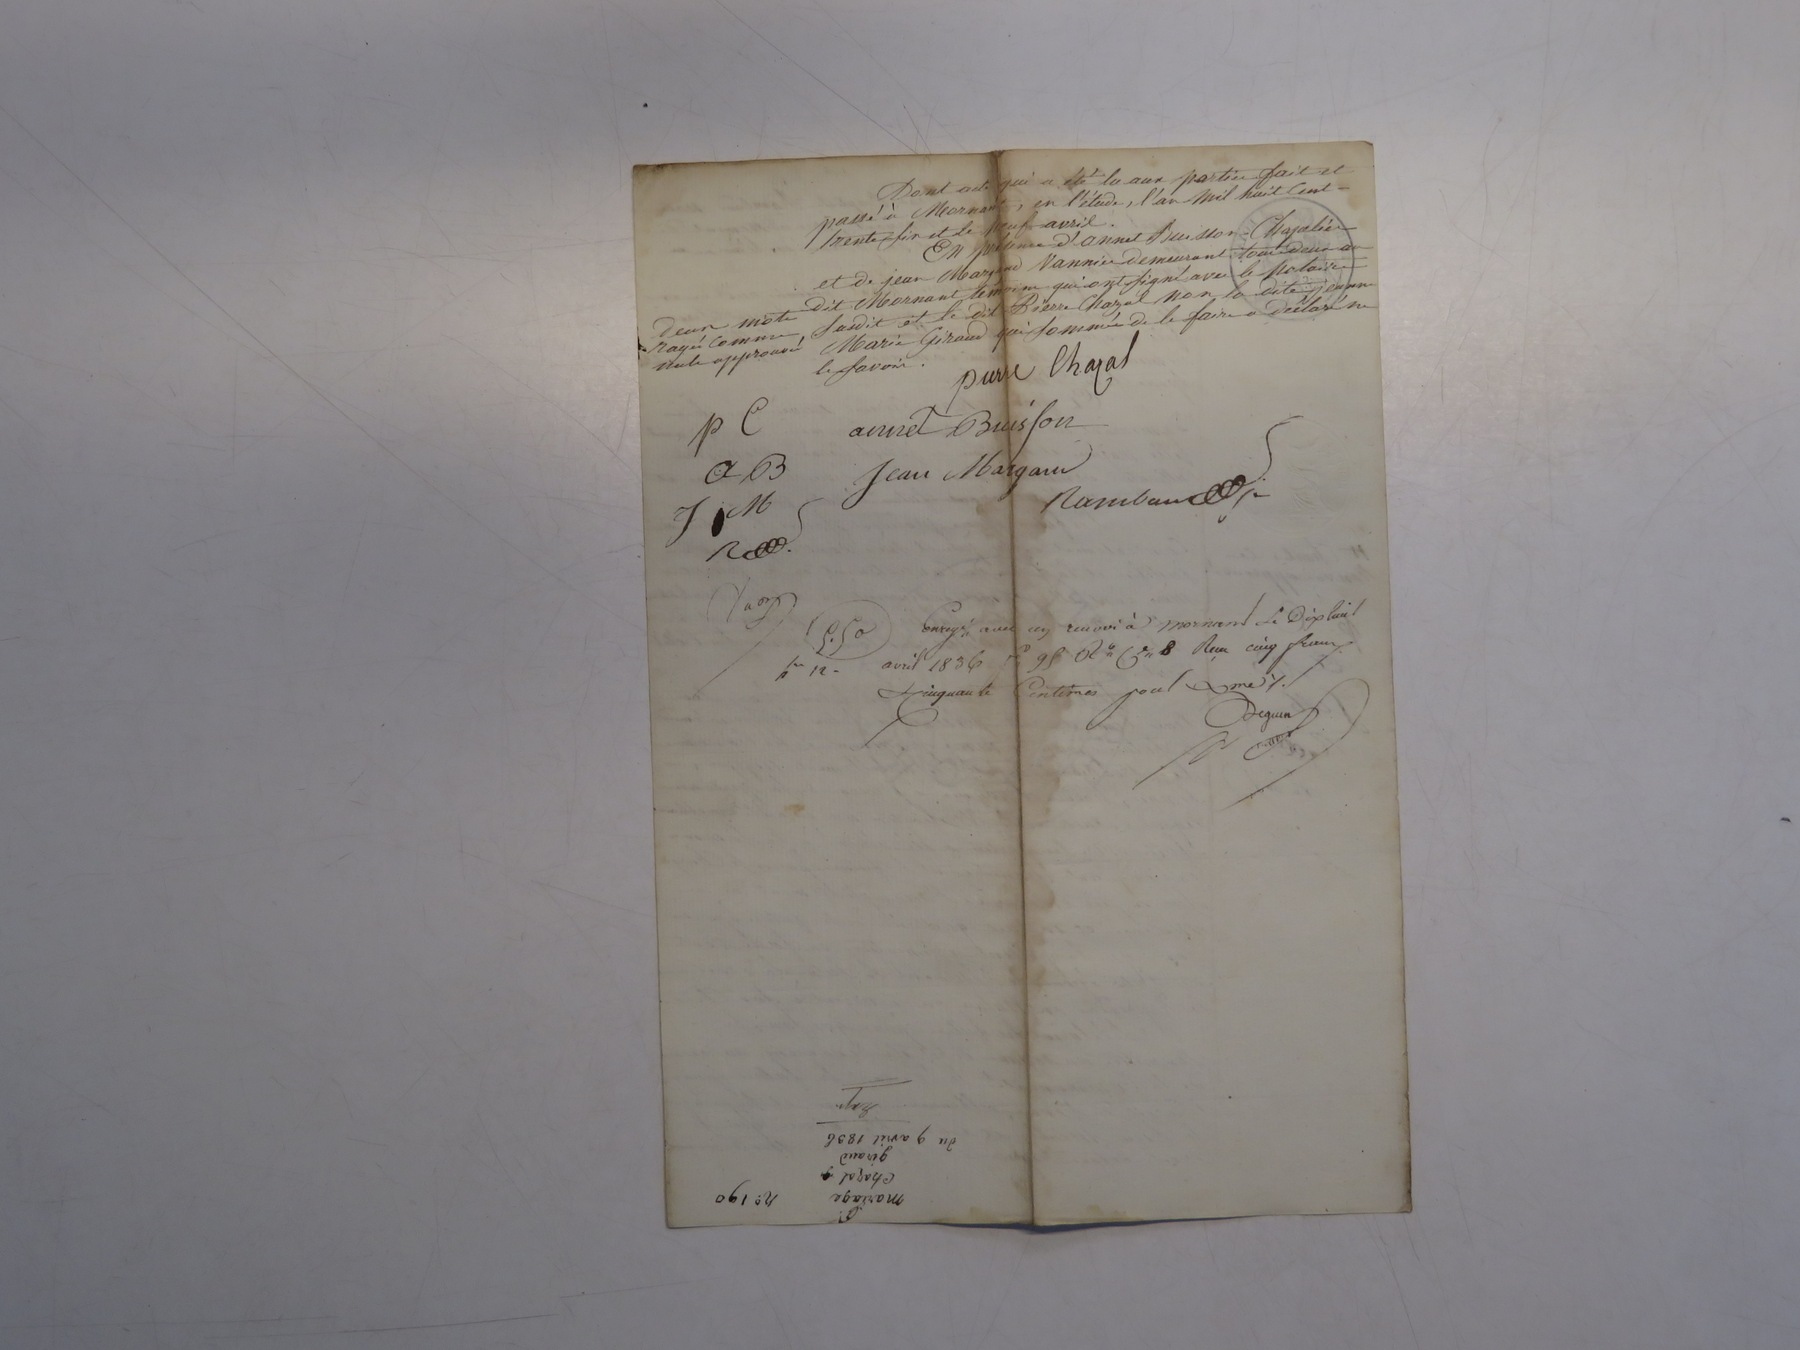 Dont acte qui a été lu aux parties fait et
passé à Mornant, en l'étude, l'an mil huit cent
trente six et le neuf avril.
En présence d'annet Buisson Chapelier
et de jean Margand Vannier demeurant tous deux au
dit Mornant témoins qui ont signé avec le Notaire
susdit et le dit Pierre Chazal non la dite jeanne
Marie Giraud qui sommée de le faire a déclaré ne
le savoir.
deux mots
rayés comme
nuls approuvé
pierre Chazal
p C
annet Buisson
a B
Jean Margan
J M
R
5.50
avec un renvoi à mornant Le Dix huit
avril 1836 95 8 Reçu cinq francs
Cinquante Centimes pour
mariage
Chazal &
giraud
du 9 avril 1836
N° 190